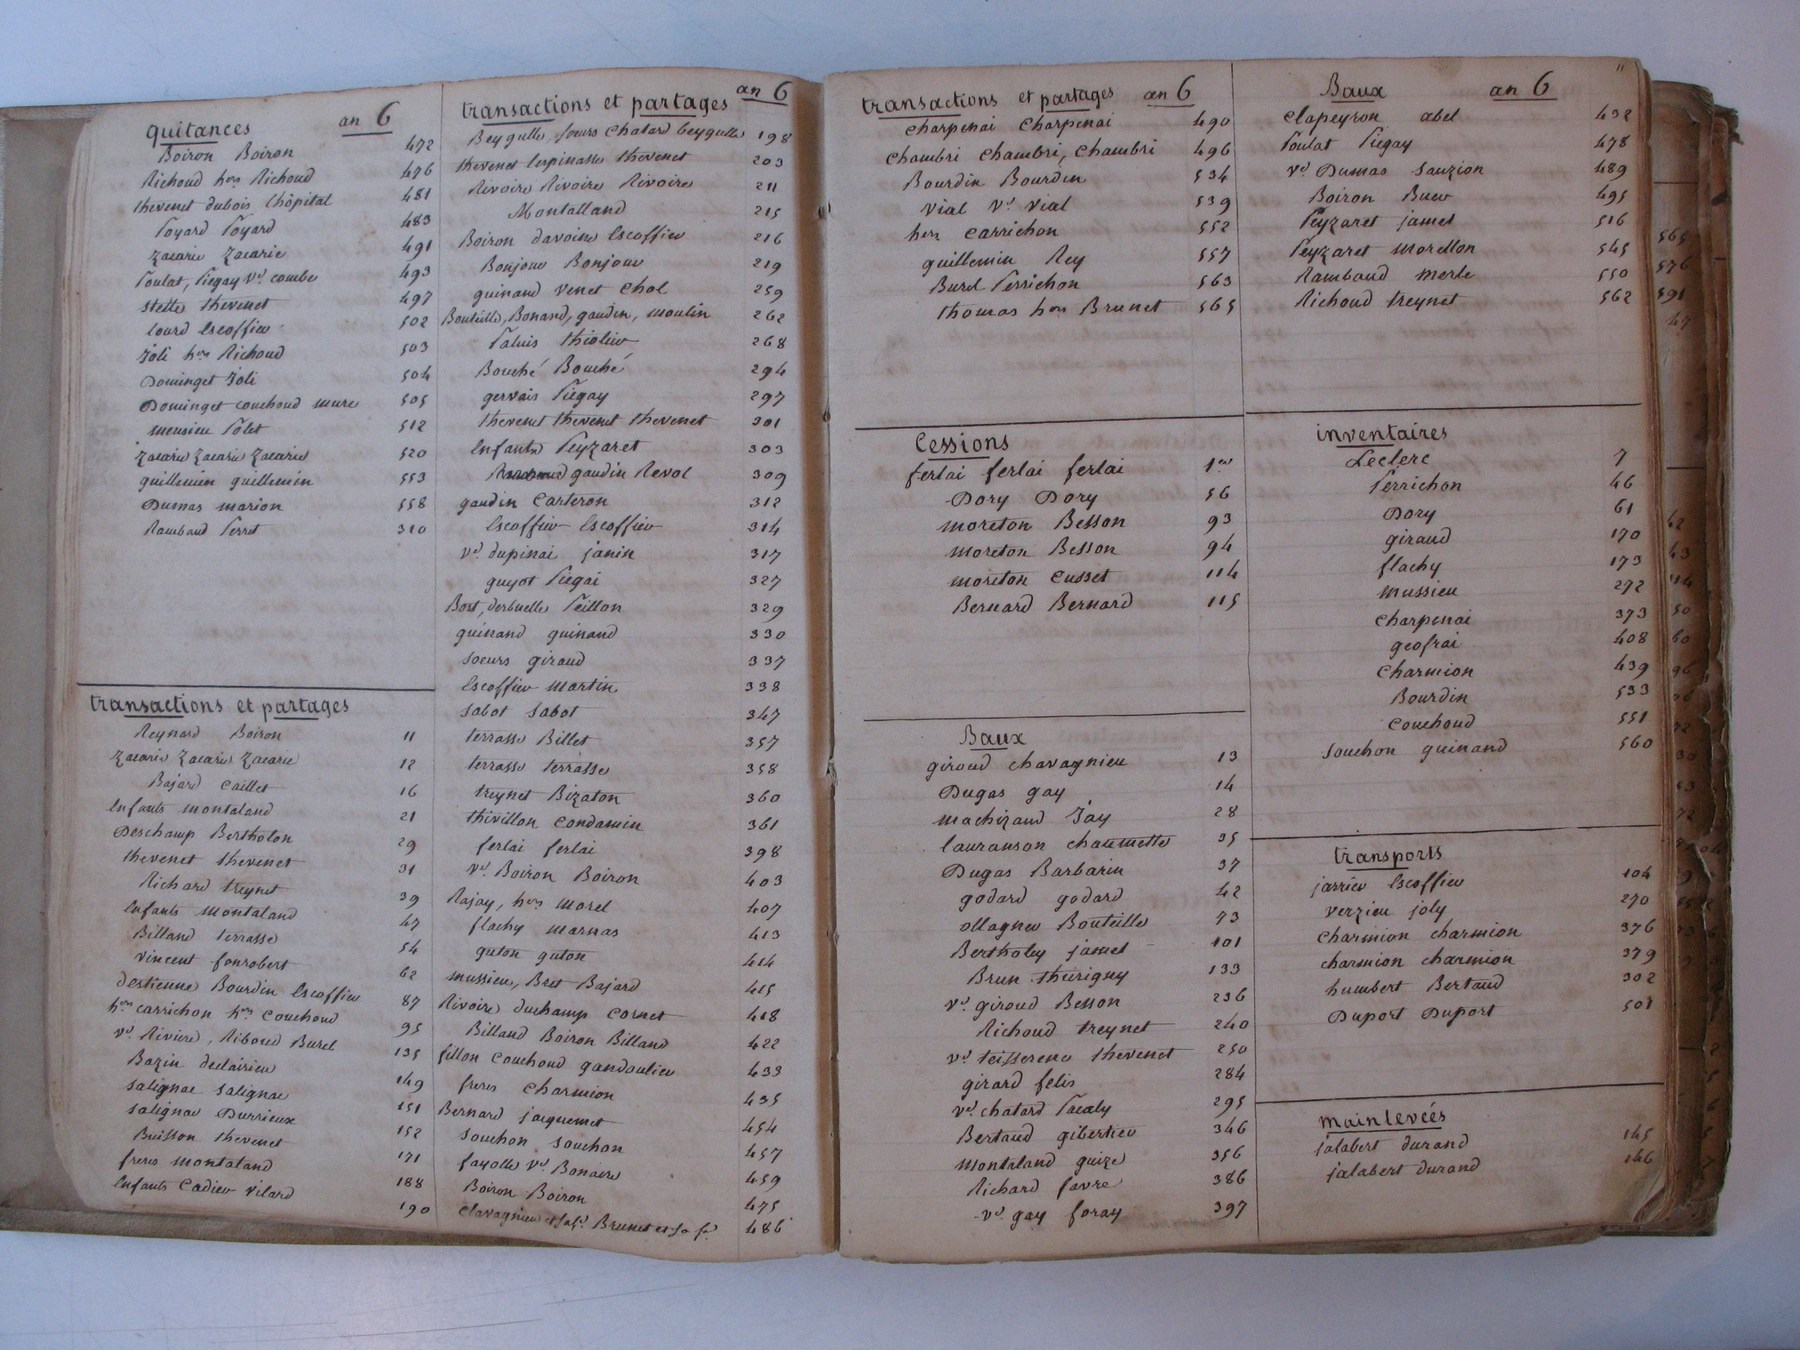 quitances an 6
Boiron Boiron 472
Richoud hers Richoud 476
thevenet dubois L'hôpital 481
Poyard Poyard 483
Zacarie Zacarie 491
Poulat, Piegay ve combe 493
Stette thevenet 497
Lourd Escoffier 502
Joli hers Richoud 503
Dominget Joli 504
Dominget couchoud mure 505
mensieu Polet 512
Zacarie Zacarie Zacarie 520
guillemin guillemin 553
Dumas marion 558
Rambaud Perret 310
transactions et partages
Reynard Boiron 11
Zacarie Zacarie Zacarie 12
Bajard Caillet 16
Enfants montaland 21
Deschamp Bertholon 29
thevenet thevenet 31
Richard treynet 39
Enfants montaland 47
Billand terrasse 54
vincent fonrobert 62
destienne Bourdin Escoffier 87
hers carrichon hers couchoud 95
ve Riviere, Riboud Burel 135
Bazin declairieu 149
salignac salignac 151
salignac Durrieux 152
Buisson thevenet 171
freres montaland 188
Enfants Cadier vilard 190
transactions et partages an 6
Beygulle, soeurs Chatard beygulle 198
thevenet Lespinasse thevenet 203
Rivoire Rivoire Rivoire 211
Montalland 215
Boiron davoine Escoffier 216
Bonjour Bonjour 219
guinand venet Chol 259
Bouteille, Bonand, gaudin, moulin 262
Paluis thiolier 268
Bouché Bouché 294
gervais Piegay 297
thevenet thevenet thevenet 301
Enfants Peyzaret 303
gaudin Revol 309
gaudin Carteron 312
Escoffier Escoffier 314
ve dupinai janin 317
guyot Piegai 327
Bost, desbuelle Peillon 329
guinand guinand 330
soeurs giraud 337
Escoffier Martin 338
Sabot Sabot 347
terrasse Billet 357
terrasse terrasse 358
treynet Bizaton 360
thivillon Condamin 361
ferlai ferlai 398
ve Boiron Boiron 403
Rajay, hers morel 407
flachy marnas 413
guton guton 414
mussieu, Bret Bajard 415
Rivoire duchamp Cornet 418
Billand Boiron Billand 422
fillon Couchoud gandoulier 433
freres Charmion 435
Bernard jacquemet 454
souchon souchon 457
fayolle ve Bonaire 459
Boiron Boiron 475
Clavagnieu et sa fe Brunet et sa fe 486
transactions et partages an 6
Charpenai Charpenai 490
Chambri Chambri, Chambri 496
Bourdin Bourdin 534
Vial ve vial 539
hers Carrichon 552
guillemin Rey 557
Burel Perrichon 563
thomas hers Brunet 565
Cessions
ferlai ferlai ferlai 1er
Dory Dory 56
moreton Besson 93
moreton Besson 94
moreton Cusset 114
Bernard Bernard 115
Baux
giroud chavagnieu 13
Dugas gay 14
machizaud Jay 28
lauranson chaumette 35
Dugas Barbarin 37
godard godard 42
ollagner Bouteille 73
Bertholey jamet 101
Brun thirigny 133
ve giroud Besson 236
Richoud treynet 240
ve teisserenc thevenet 250
girard felis 284
ve chatard Pacaly 295
Bertaud gibertier 346
montaland guize 356
Richard favre 386
ve gay foray 397
11
Baux an 6
Clapeyron abel 432
Poulat Piegay 478
ve Dumas Sauzion 489
Boiron Buer 495
Peyzaret jamet 516
Peyzaret morellon 545
Rambaud merle 550
Richoud treynet 562
inventaires
Leclerc 7
Perrichon 46
Dory 61
giraud 170
flachy 173
mussieu 272
Charpenai 373
geofrai 408
Charmion 439
Bourdin 533
Couchoud 551
souchon guinand 560
transports
jarrieu Escoffier 104
verzieu joly 270
Charmion charmion 376
charmion charmion 379
humbert Bertaud 302
Duport Duport 501
mainlevées
jalabert durand 145
jalabert durand 146
565
576
591